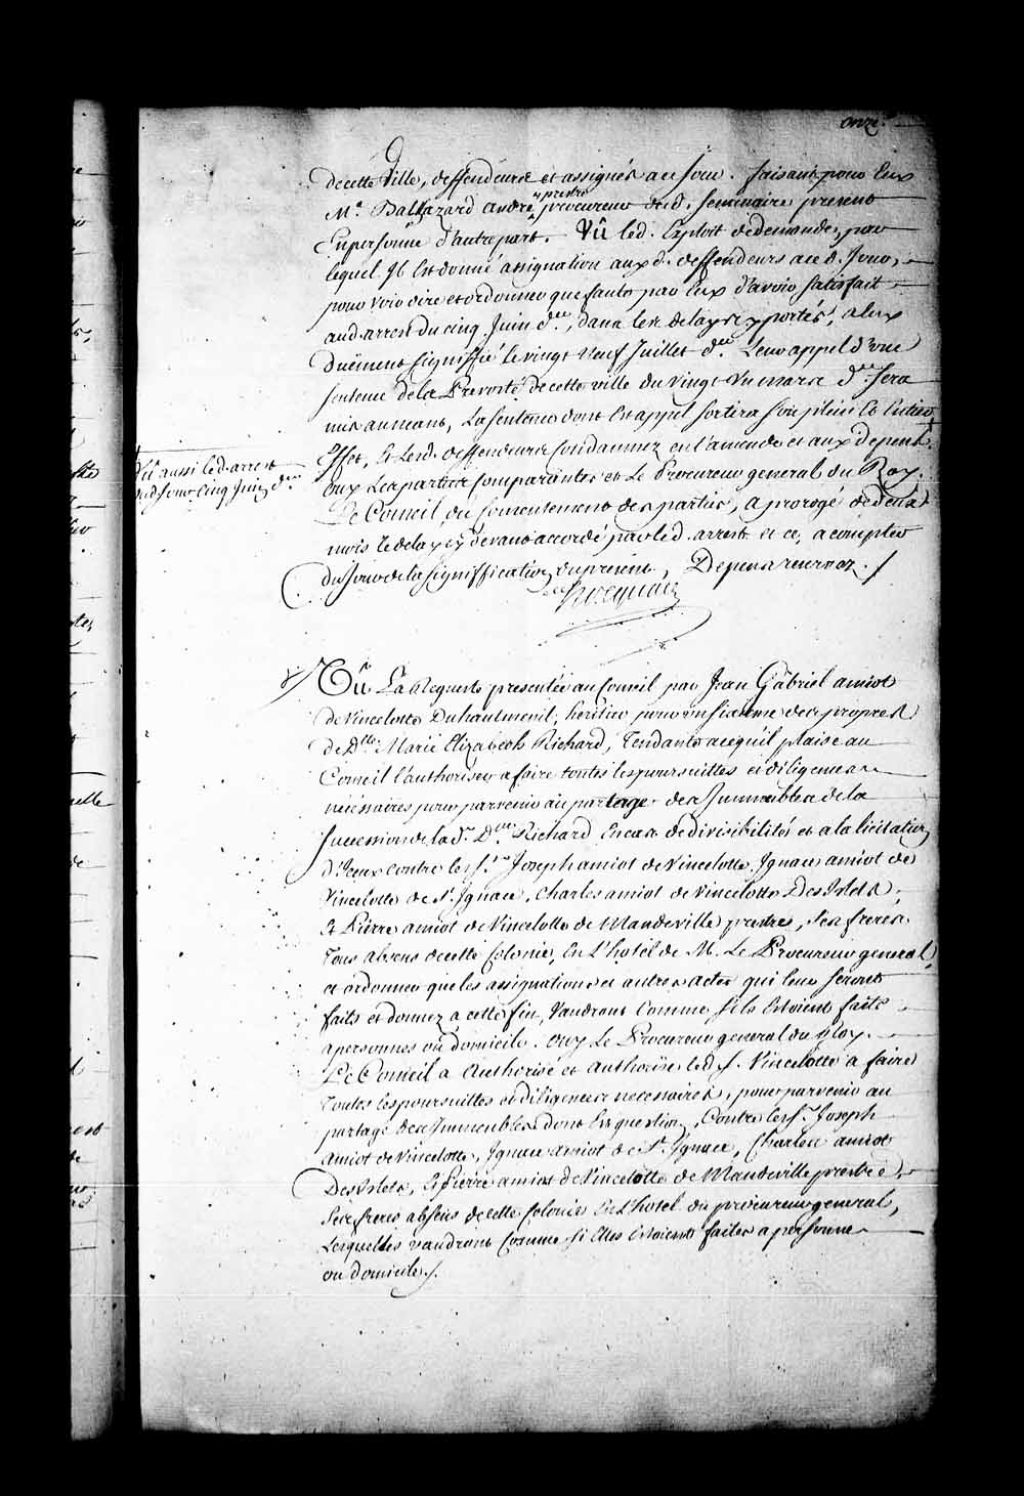 onze.
de cette Ville, deffendeurs et assignés a ce jour. faisant pour Eux
Me. Baltazard andré prestre procureur dud. Seminaire present
En personne d'autre part. Vû led. Exploit de demande, par
lequel Il Est donné assignation auxd. deffendeurs a ce d. Jour,
pour voir dire et ordonner que faute par Eux d'avoir satisfait
aud. arrest du cinq Juin der., dans les delays y portés, a Eux
Duëment signiffié le vingt neuf Juillet der. Leur appel d'une
sentence de la Prevosté de cette ville du vingt un mars der. sera
mis au neant, La sentence dont Est appel sortira son plein et Entier
Effet, Et lesd. deffendeurs Condamnez en l'amende et aux depens.
Vû aussi led. arrest
dud. jour cinq Juin der.
ouy Les parties comparantes et Le Procureur general du Roy.
Le Conseil du consentement des parties, a prorogé de deux
mois le delay cy devant accordé par led. arrest et ce, a compter
du jour de la signiffication du present, Depens reservez ./
Vû La Requeste presentée au Conseil par Jean Gabriel amiot
de Vincelotte Duhautmenil, heritier pour un sixieme des propres
de Dlle. Marie Elizabeth Richard, Tendante a ce qu'il plaise au
Conseil l'authoriser a faire toutes les poursuittes et diligences
necessaires pour parvenir au partage des Immeubles de la
succession de la d. Dlle. Richard En cas de divisibilités et a la licitation
d'Iceux contre les Srs. Joseph amiot de Vincelotte, Ignace amiot de
Vincelotte de St. Ignace, Charles amiot de Vincelotte Des Islets,
Et Pierre amiot de Vincelotte de Mandeville prestre, Ses freres
Tous absens de cette Colonie, En L'hotel de M. Le Procureur general,
et ordonner que les assignations et autres actes qui leur seront
faits et donnez a cette fin, Vaudront Comme s'ils Estoient faits
a personnes ou domicile. ouy Le Procureur general du Roy.
Le Conseil a authorisé et authorise led. S. Vincelotte a faire
Toutes les poursuittes et diligences necessaires, pour parvenir au
partage des Immeubles dont Est question, Contre les Srs. Joseph
amiot de Vincelotte, Ignace amiot de St. Ignace, Charles amiot
Des Islets, Et Pierre amiot de Vincelotte de Mandeville prestre,
Ses freres absens de cette Colonie En L'hotel du procureur general,
Lesquelles vaudront Comme si Elles Estoient faites a personne
ou domicile ./.